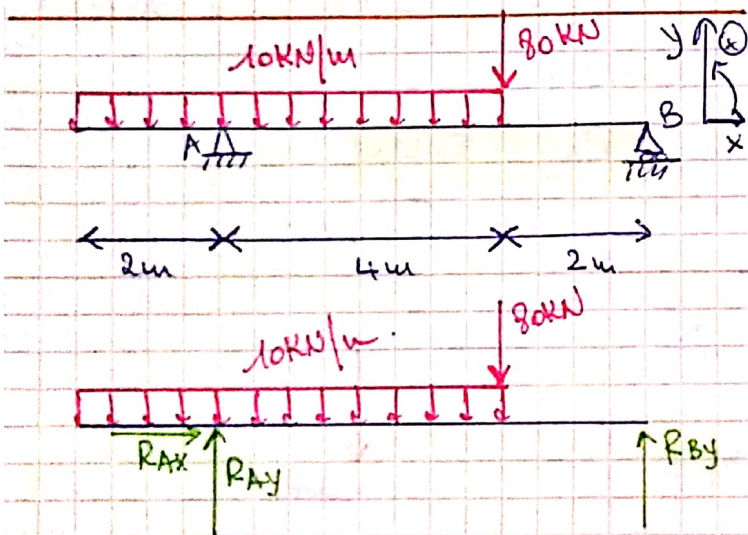 10KN/m 80KN y +
A B x
2m 4m 2m
10KN/m. 80KN
RAX RAy RBy